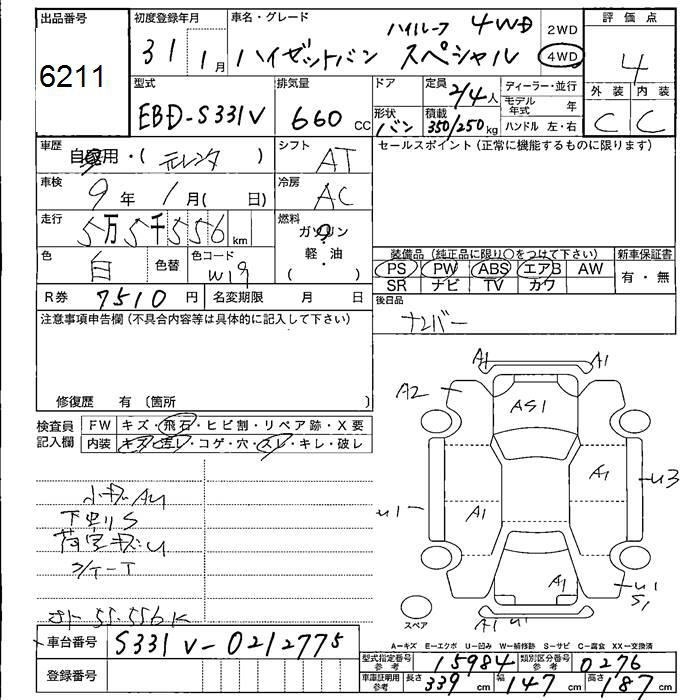 出品番号 初度登録年月 車名・グレード 評価点
6211 31年 1月 ハイゼットバン ハイルーフ 4WD スペシャル 2WD 4WD 4
外装 内装
C C
型式 排気量 ドア 定員 ディーラー・並行
EBD-S331V 660 CC 2/4人 モデル年式 年
形状 積載 ハンドル 左・右
バン 350/250kg
車歴 自家用・( レンタ ) シフト AT セールスポイント(正常に機能するものに限ります)
車検 9年 1月( 日) 冷房 AC
走行 5万5千556km 燃料 ガソリン
軽・油
( )
色 白 色替 色コード W19
装備品(純正品に限り○をつけて下さい) 新車保証書
PS PW ABS エアB AW 有・無
SR ナビ TV カワ
R券 7510円 名変期限 月 日 後日品
ナンバー
注意事項申告欄(不具合内容等は具体的に記入して下さい)
修復歴 有 〔箇所 〕
検査員記入欄 FW キズ・飛石・ヒビ割・リペア跡・X要
内装 キズ・汚レ・コゲ・穴・スレ・キレ・破レ
A1 A1
A2 AS1
A1 U3
U1 A1
A1 U1
S1
A1 U1
スペア
小キズ AU
下廻り S
荷室キズU
55.556K
A-キズ E-エクボ U-凹み W-補修跡 S-サビ C-腐食 XX-交換済
車台番号 S331V-0212775
登録番号
型式指定番号 参考 15984 類別区分番号 参考 0276
車庫証明用 参考 長さ 339 cm 幅 147 cm 高さ 187 cm